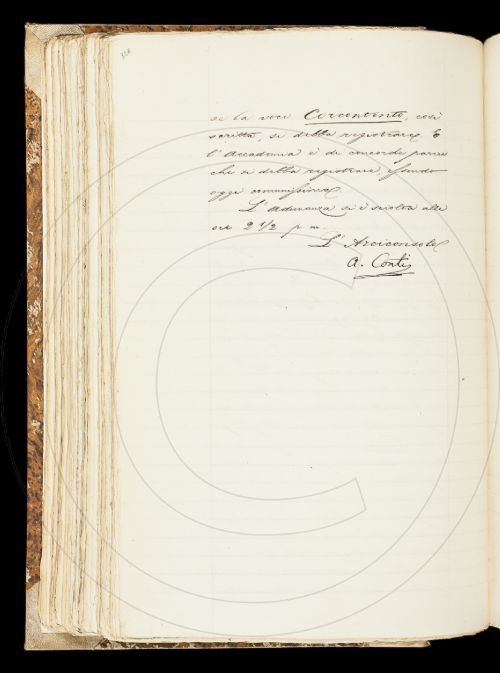 se la voce Corcontento, così
scritta, si debba registrare. E
l'Accademia è di concorde parere
che si debba registrare, essendo
oggi comunissima.
L'Adunanza si è sciolta alle
ore 2 1/2 p. m.
L'Arciconsolo
A. Conti